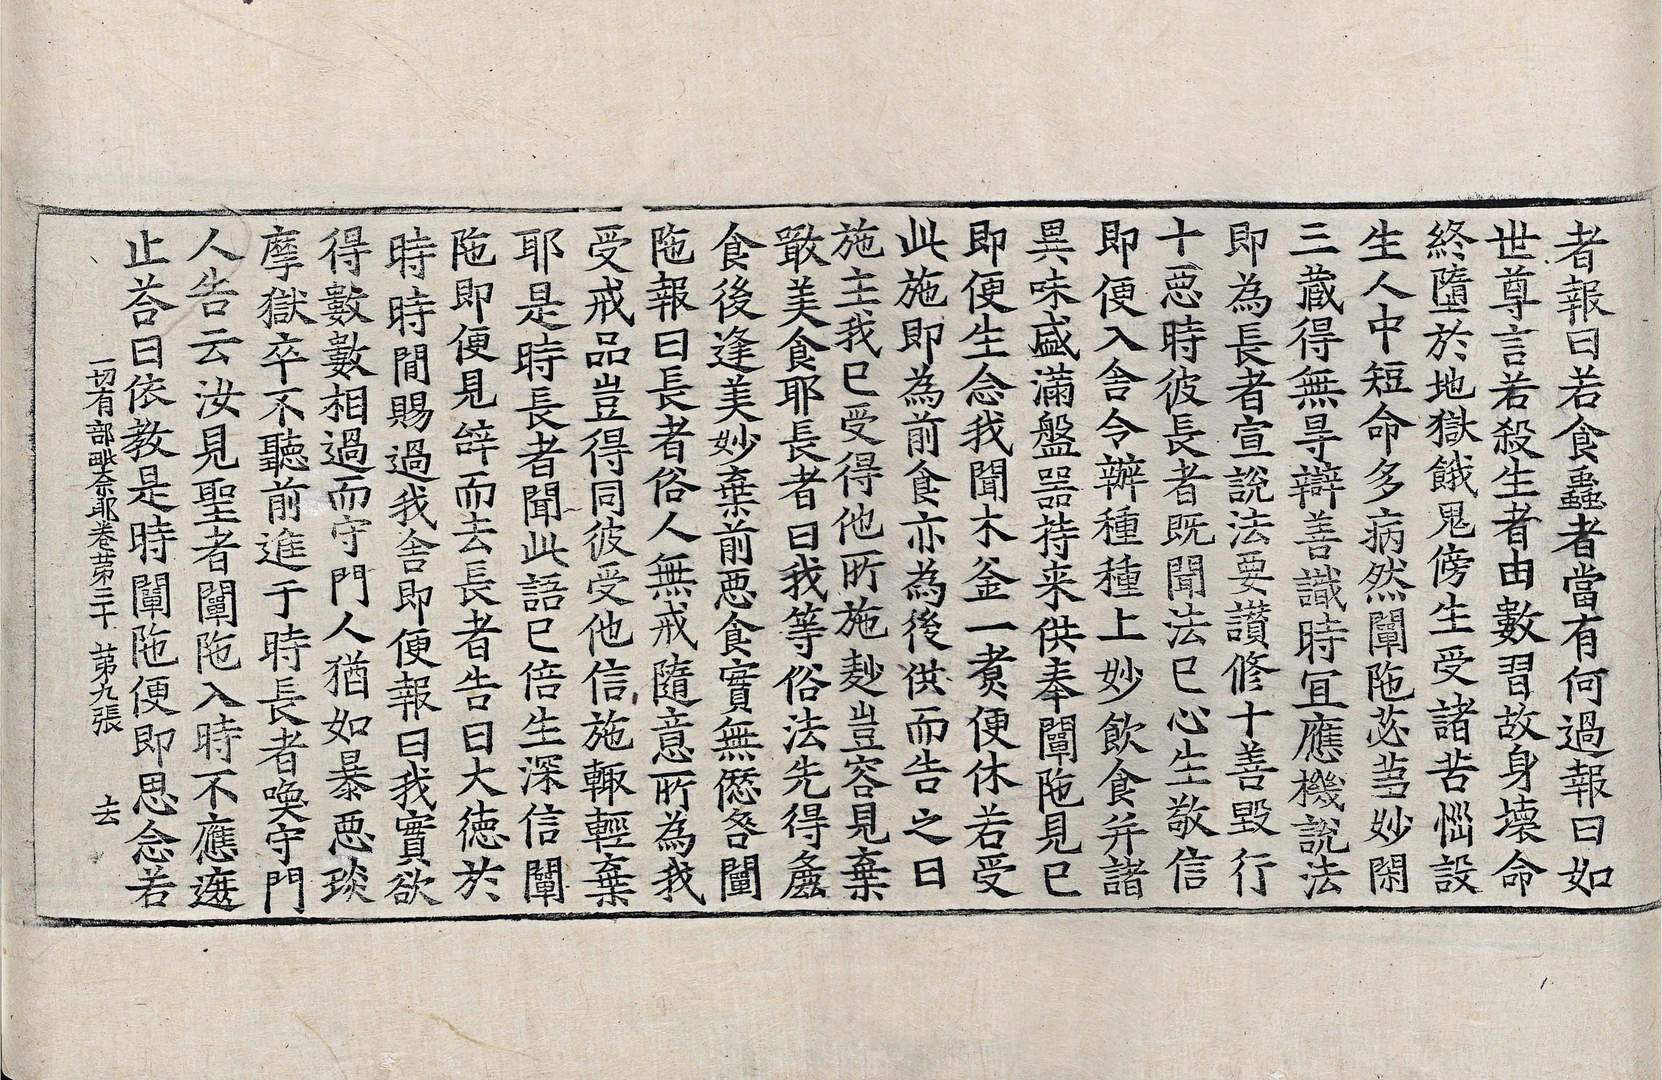 者報曰若食蟲者當有何過報曰如
世尊言若殺生者由數習故身壞命
終墮於地獄餓鬼傍生受諸苦惱設
生人中短命多病然闡陁苾芻妙閑
三藏得無㝵辯善識時宜應機說法
即為長者宣說法要讚修十善毀行
十惡時彼長者既聞法已心生敬信
即便入舍令辦種種上妙飲食并諸
異味盛滿盤器持来供奉闡陁見已
即便生念我聞木釜一煑便休若受
此施即為前食亦為後供而告之曰
施主我已受得他所施麨豈容見棄
噉美食耶長者曰我等俗法先得麁
食後逢美妙棄前惡食實無愆咎闡
陁報曰長者俗人無戒隨意所為我
受戒品豈得同彼受他信施輙輕棄
耶是時長者聞此語已倍生深信闡
陁即便見辝而去長者告曰大德於
時時間賜過我舍即便報曰我實欲
得數數相過而守門人猶如暴惡琰
摩獄卒不聽前進于時長者喚守門
人告云汝見聖者闡陁入時不應遮
止荅曰依教是時闡陁便即思念若
一切有部毗奈耶卷苐三十 苐九張 去